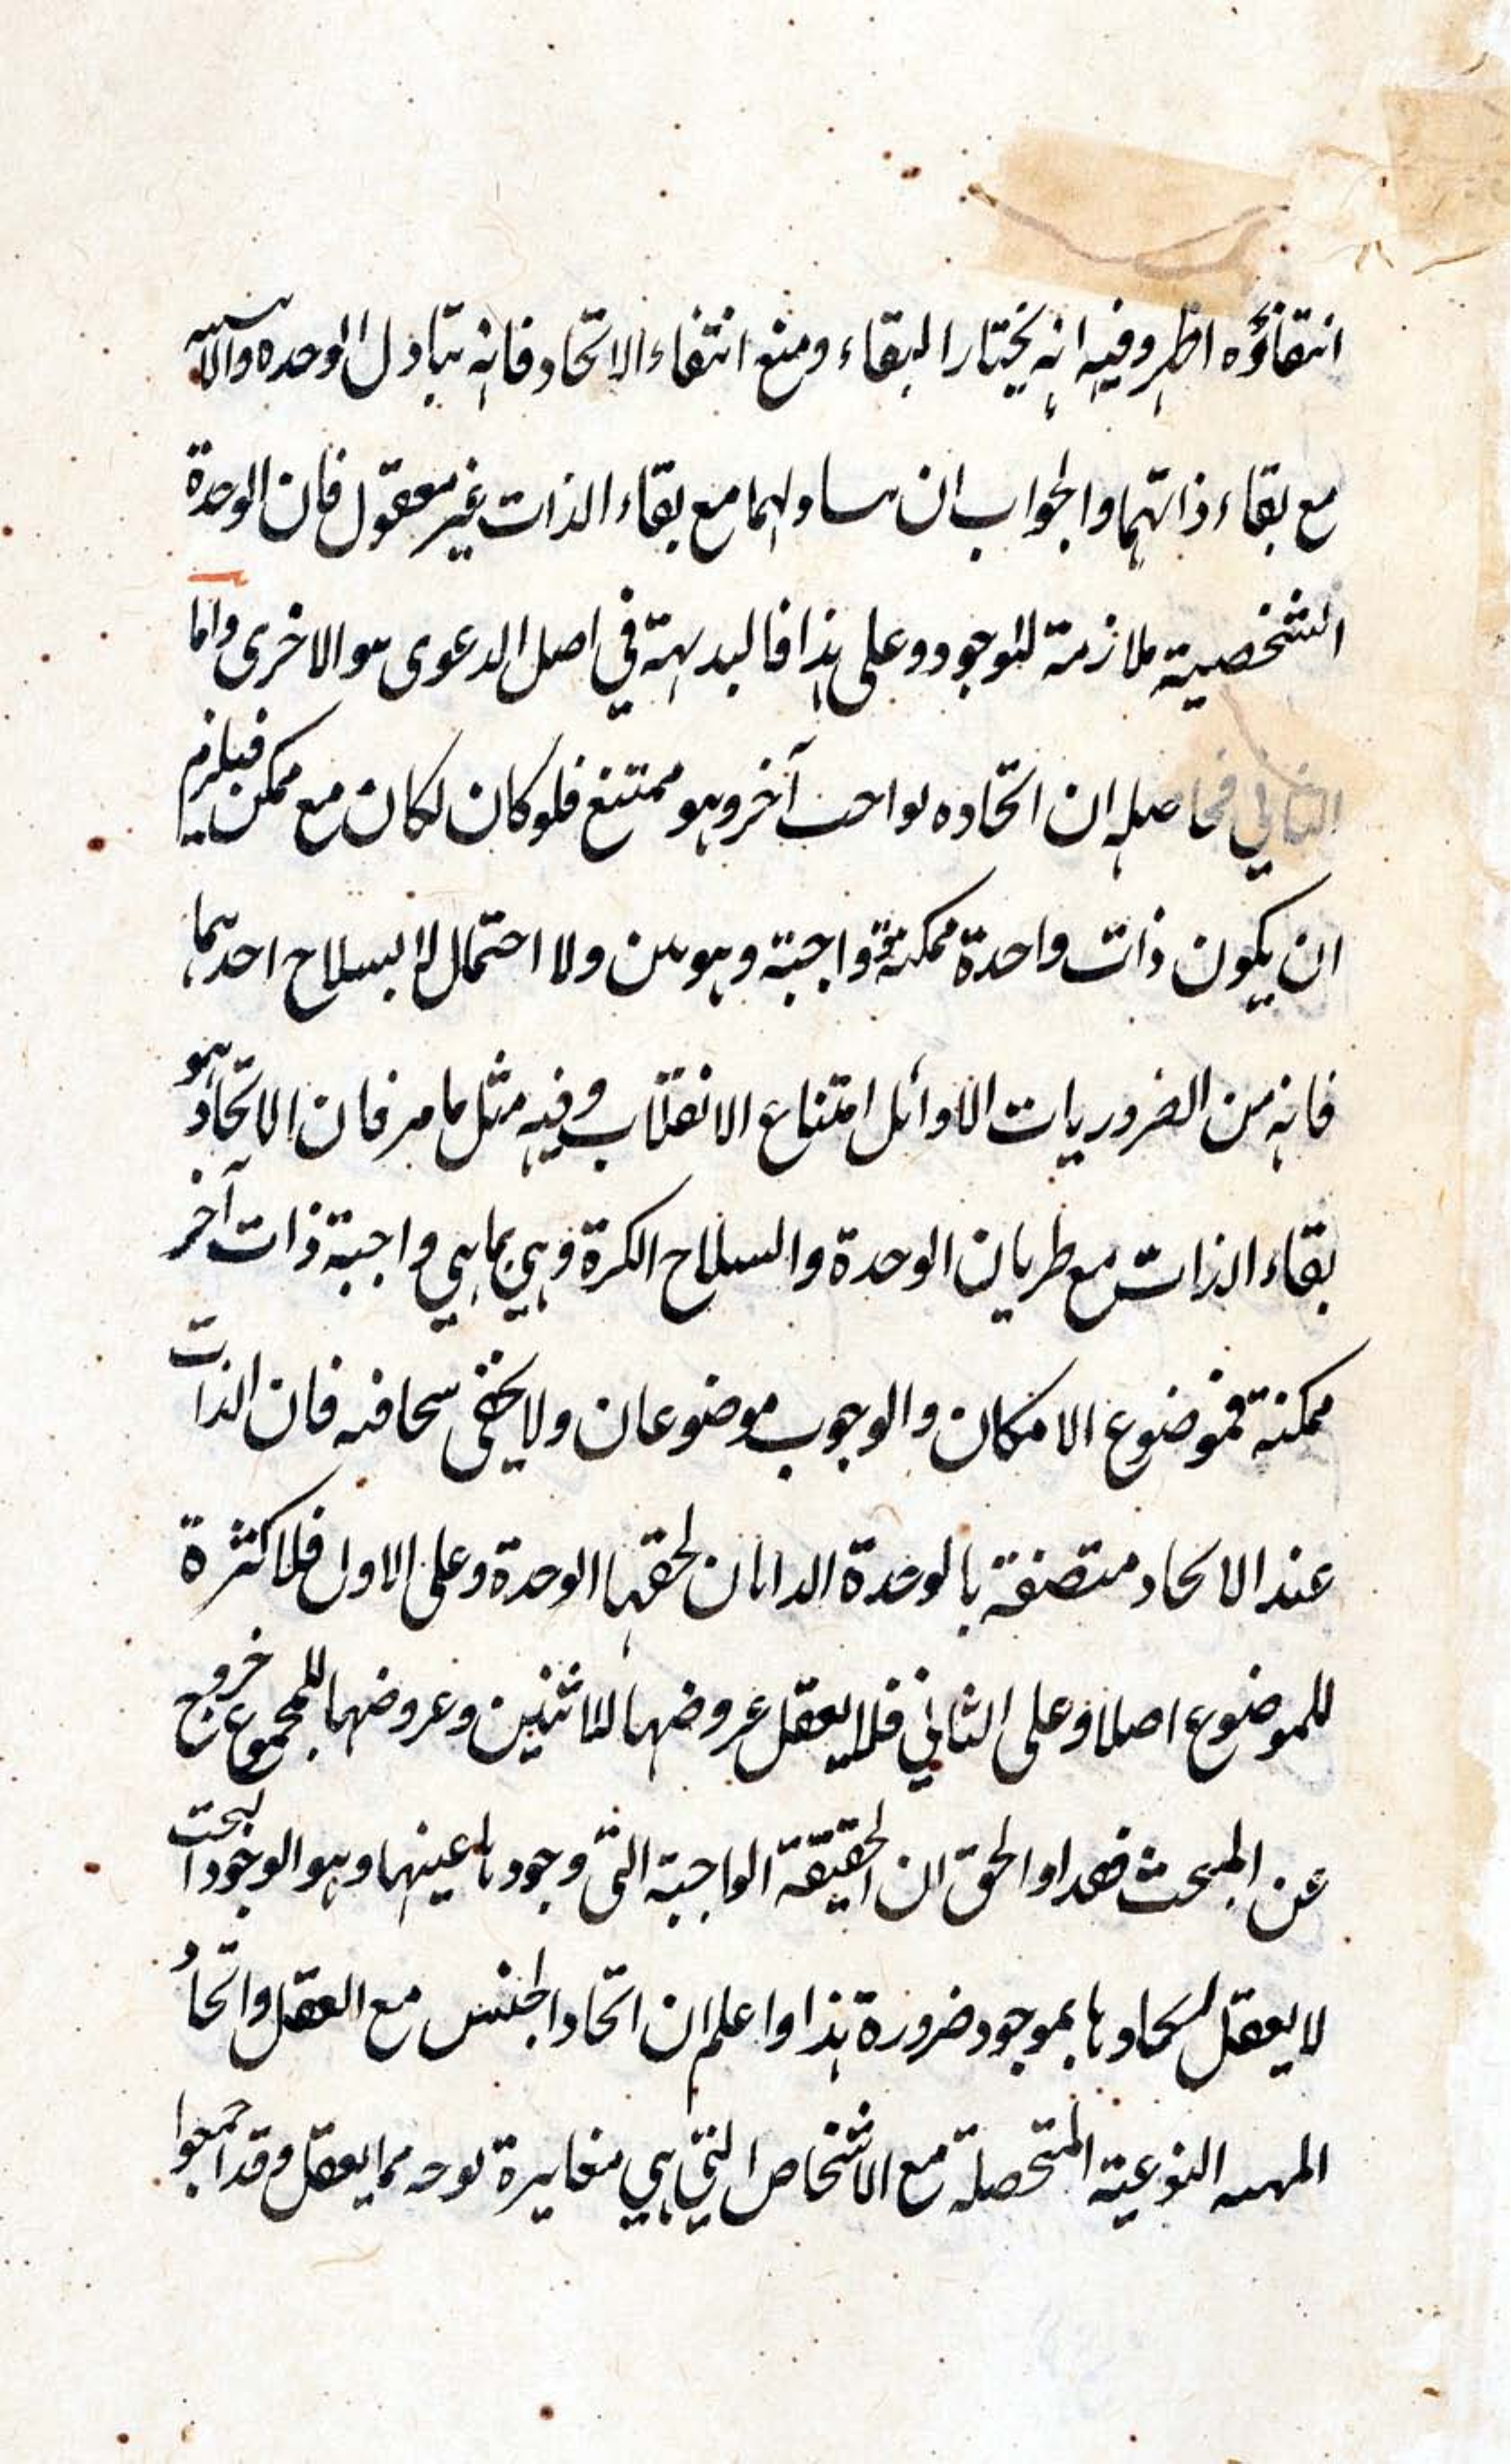 انتقاؤه اظهر وفيه انه يختار البقاء ومنع انتفاء الاتحاد فانه تبادل الوحدة والاثنينية
مع بقاء ذاتهما والجواب ان تبادلهما مع بقاء الذات غير معقول فان الوحدة
الشخصية ملازمة للوجود وعلى هذا فالبديهة في اصل الدعوى هو الاخرى واما
الثاني فحاصله ان اتحاده بواجب آخر وهو ممتنع فلو كان لكان مع ممكن فيلزم
ان يكون ذات واحدة ممكنة واجبة وهو ولا احتمال لانسلاخ احدهما
فانه من الضروريات الاوائل امتناع الانقلاب وفيه مثل ما مر فان الاتحاد هو
بقاء الذات مع طريان الوحدة وانسلاخ الكثرة وهي بما هي واجبة ذات آخر
ممكنة فموضوع الامكان والوجوب موضوعان ولا يخفى سخافته فان الذات
عند الاتحاد متصفة بالوحدة الذاتان لحقها الوحدة وعلى الاول فلا كثرة
للموضوع اصلا وعلى الثاني فلا يعقل عروضها للاثنين وعروضها للمجموع خروج
عن المبحث فهذا والحق ان الحقيقة الواجبة التي وجودها عينها وهو الوجود البحت
لا يعقل اتحادها بموجود ضرورة هذا واعلم ان اتحاد الجنس مع الفصل واتحاد
المهية النوعية المتحصلة مع الاشخاص التي هي مغايرة بوجه مما يعقل وقد اجمعوا